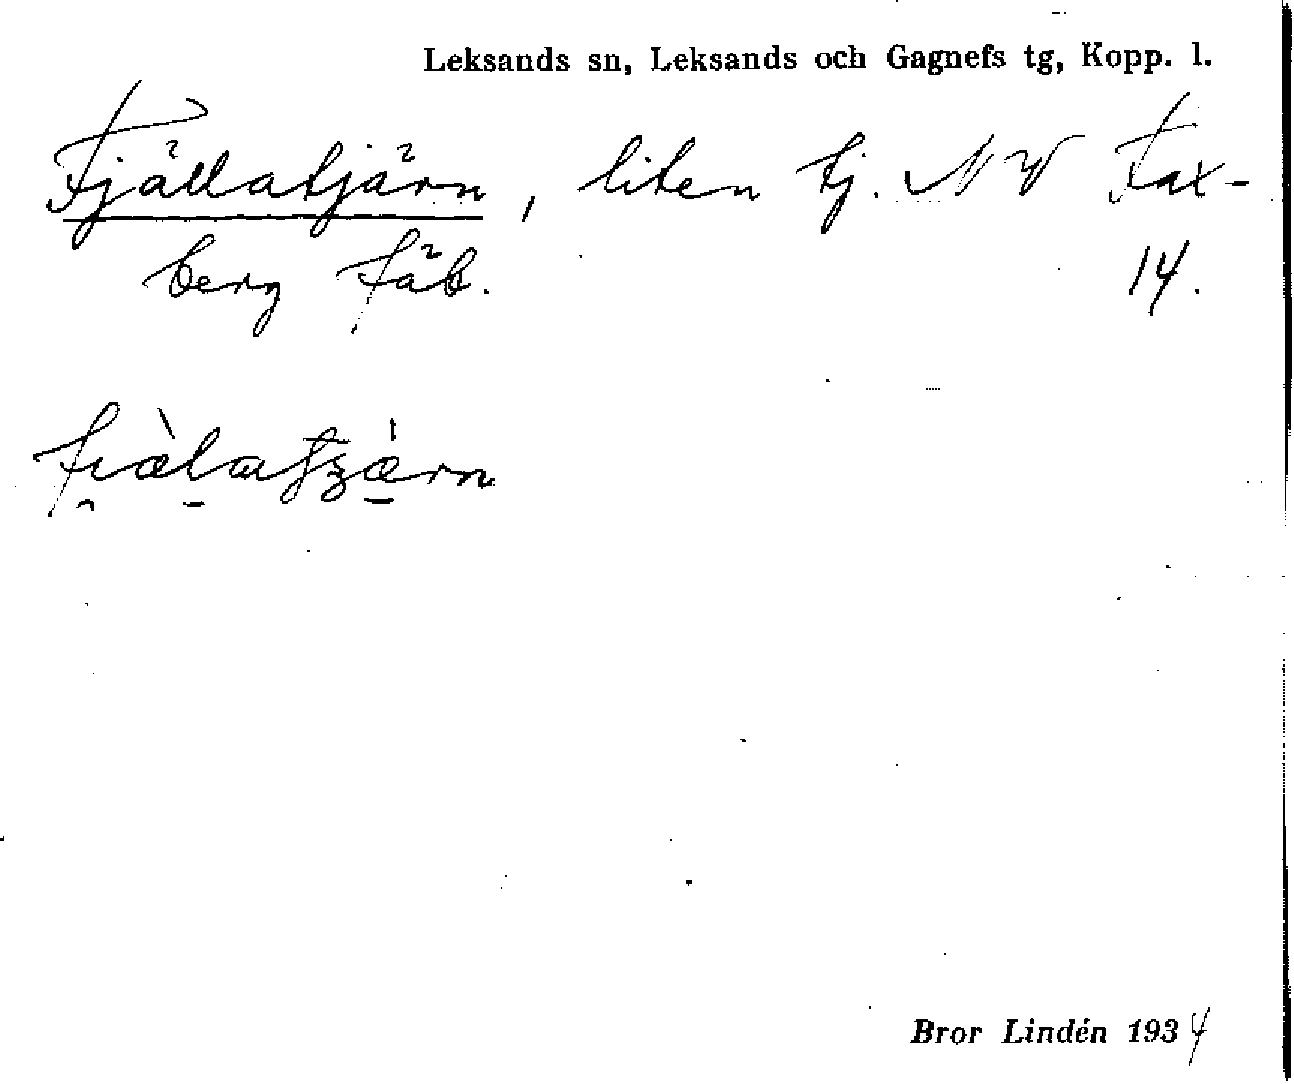 Leksands sn, Leksands och Gagnefs tg, Kopp. l.
Fjällatjärn, liten tj. NV Fax-
berg fäb. 14.
Bror Lindén 1934